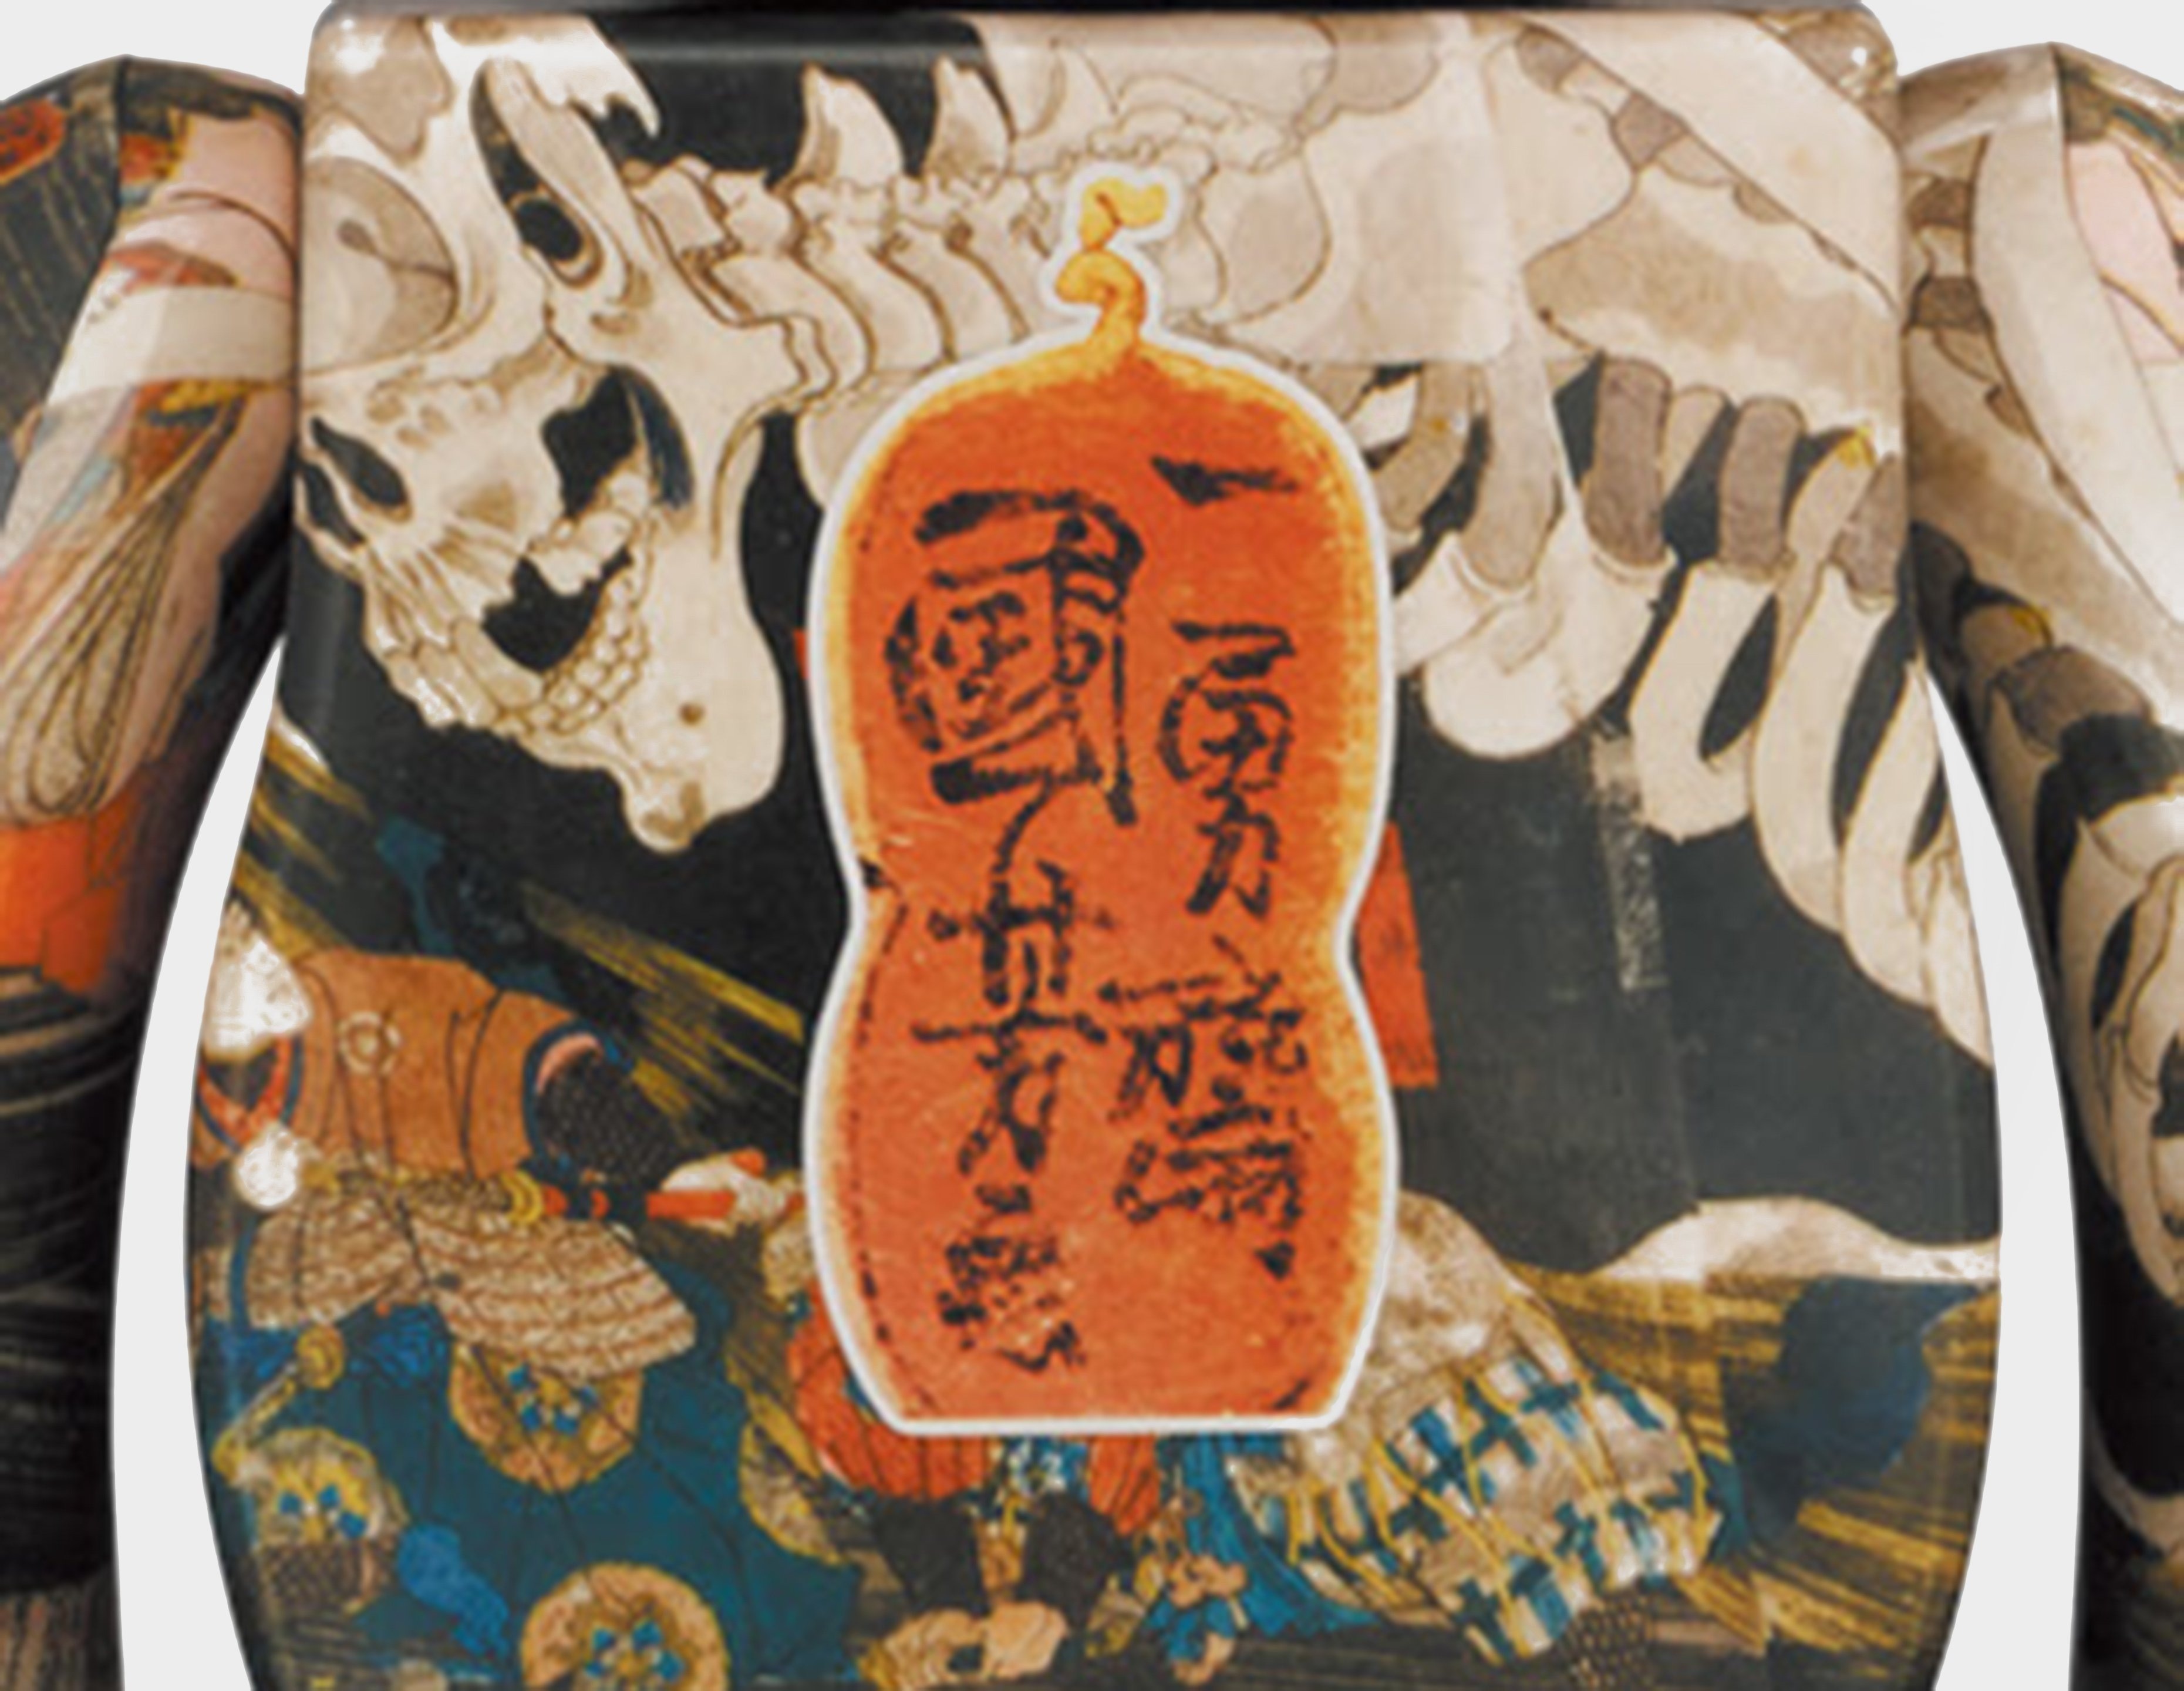 一勇齋
國芳畫